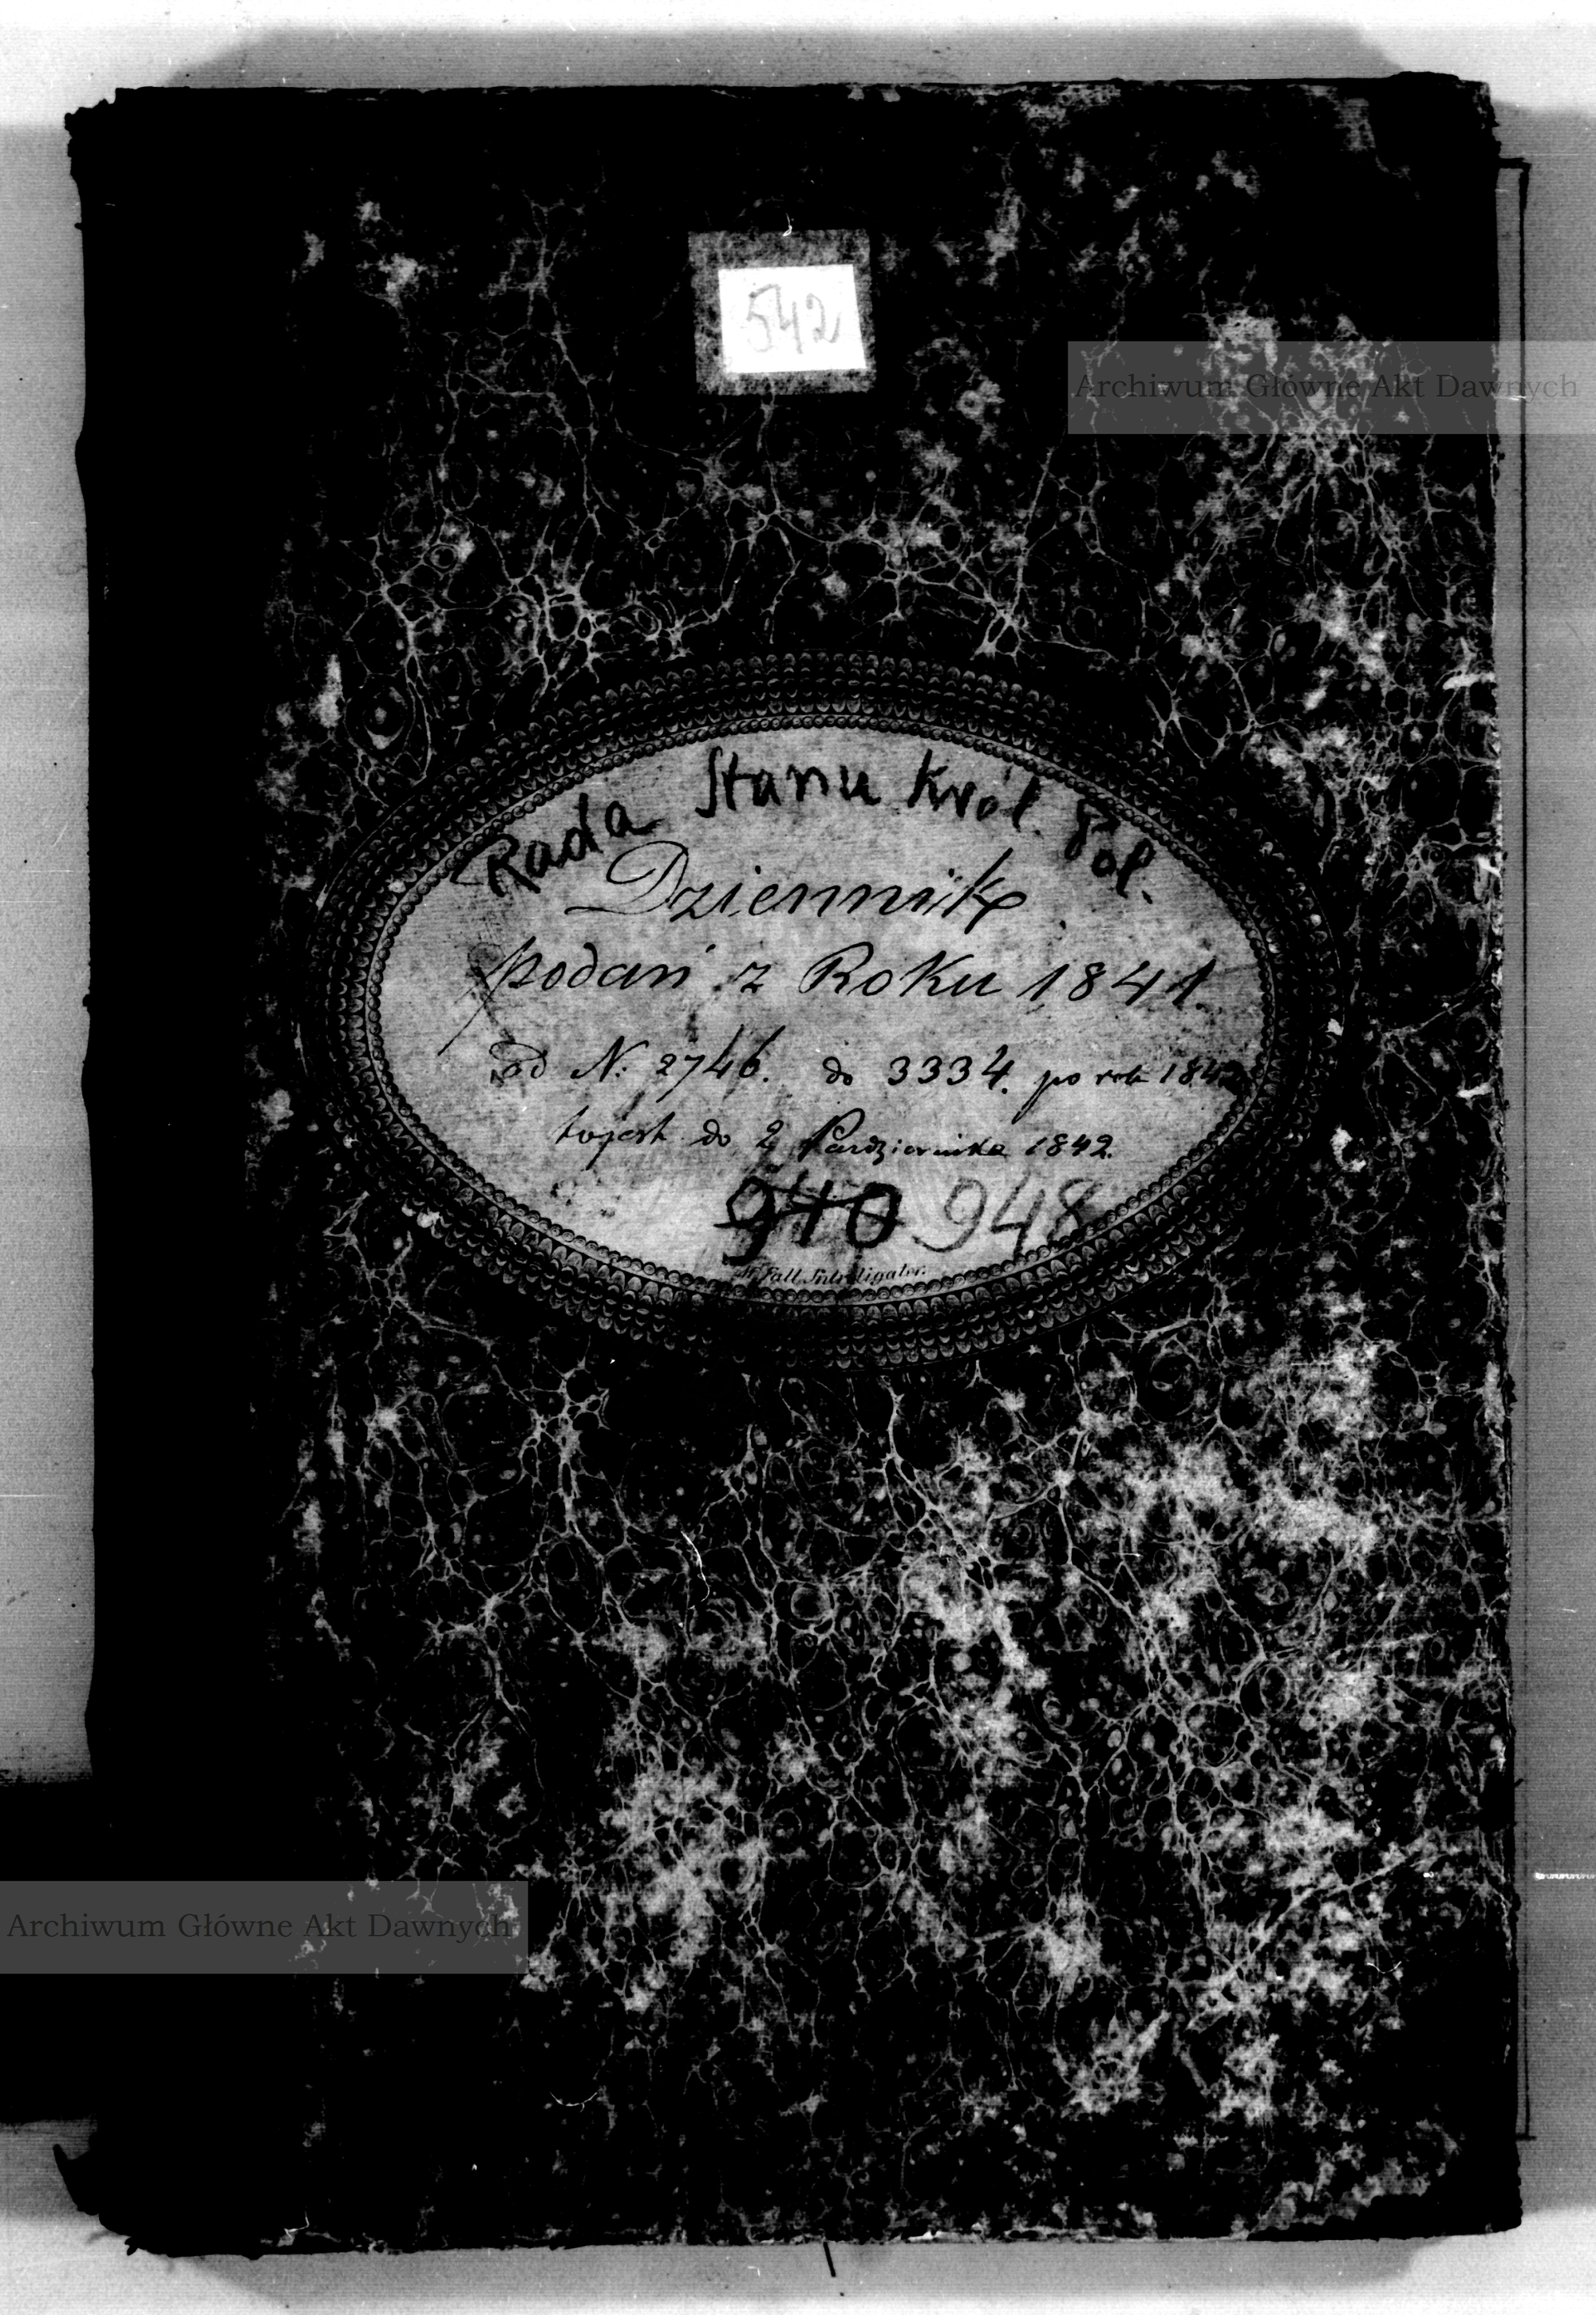 542
Archiwum Główne Akt Dawnych
Rada Stanu Król. Pol.
Dziennik
podań z Roku 1841.
od N: 2746. do 3334. po rok 1842
to jest do 2 Października 1842.
940 948
Fall Introligator.
Archiwum Główne Akt Dawnych